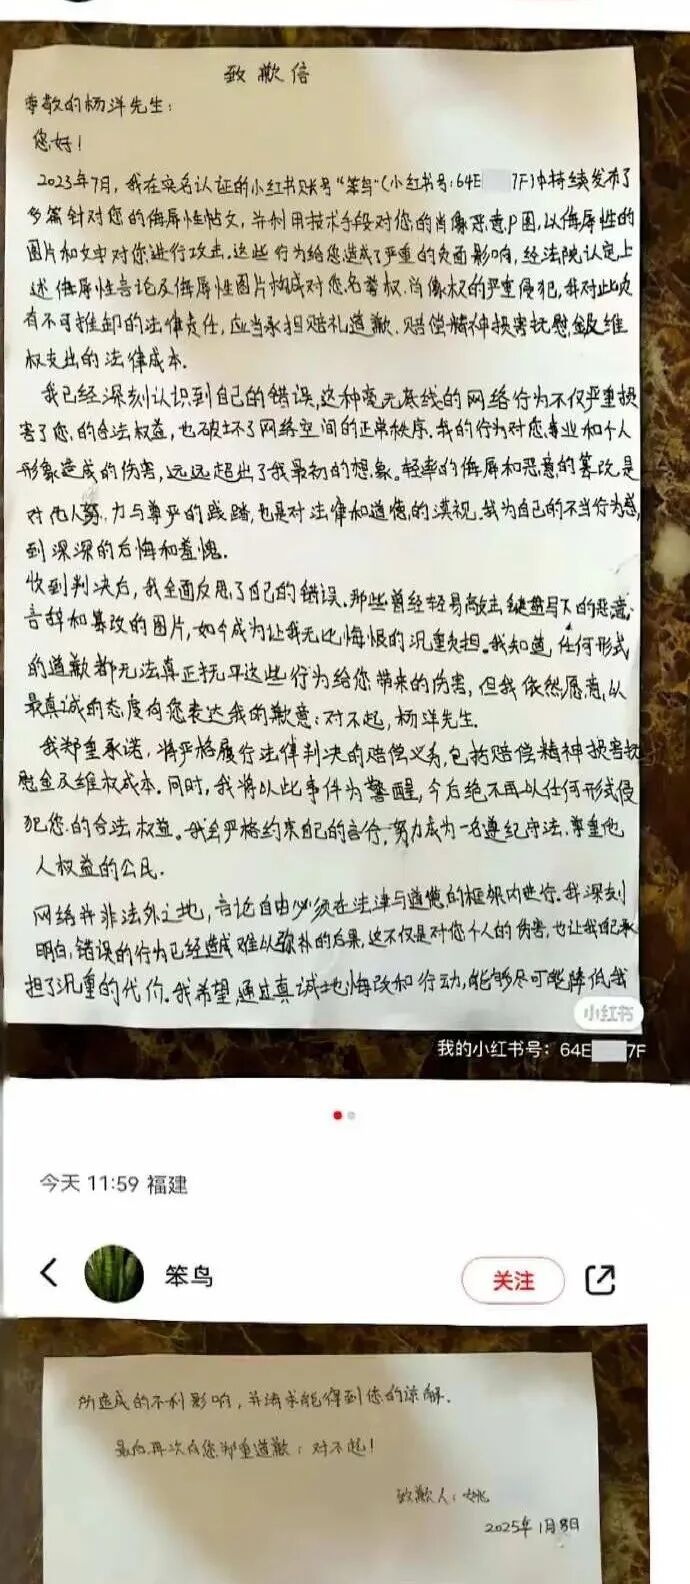 致歉信
尊敬的杨洋先生：
您好！
2023年7月，我在实名认证的小红书账号“笨鸟”(小红书号：64E 7F)中持续发布了
多篇针对您的侮辱性帖文，并利用技术手段对您的肖像恶意P图，以侮辱性的
图片和文字对您进行攻击，这些行为给您造成了严重的负面影响，经法院认定上
述侮辱性言论及侮辱性图片构成对您名誉权、肖像权的严重侵犯，我对此负
有不可推卸的法律责任，应当承担赔礼道歉、赔偿精神损害抚慰金及维
权支出的法律成本.
我已经深刻认识到自己的错误，这种毫无底线的网络行为不仅严重损
害了您的合法权益，也破坏了网络空间的正常秩序.我的行为对您事业和个人
形象造成的伤害，远远超出了我最初的想象。轻率的侮辱和恶意的篡改，是
对他人努力与尊严的践踏，也是对法律和道德的漠视。我为自己的不当行为感
到深深的后悔和羞愧.
收到判决后，我全面反思了自己的错误.那些曾经轻易敲击键盘写下的恶意
言辞和篡改的图片，如今成为让我无比悔恨的沉重负担.我知道，任何形式
的道歉都无法真正抚平这些行为给您带来的伤害，但我依然愿意，以
最真诚的态度向您表达我的歉意：对不起，杨洋先生.
我郑重承诺，将严格履行法律判决的赔偿义务，包括赔偿精神损害抚
慰金及维权成本.同时，我将以此事件为警醒，今后绝不再以任何形式侵
犯您的合法权益。我会严格约束自己的言行，努力成为一名遵纪守法、尊重他
人权益的公民.
网络并非法外之地，言论自由必须在法律与道德的框架内进行.我深刻
明白，错误的行为已经造成难以弥补的后果，这不仅是对您个人的伤害，也让我自己承
担了沉重的代价.我希望，通过真诚地悔改和行动，能够尽可能降低我
小红书
我的小红书号：64E 7F
今天 11:59 福建
笨鸟
关注
所造成的不利影响，并请求能得到您的谅解.
最后再次向您郑重道歉：对不起！
致歉人：姚
2025年1月8日